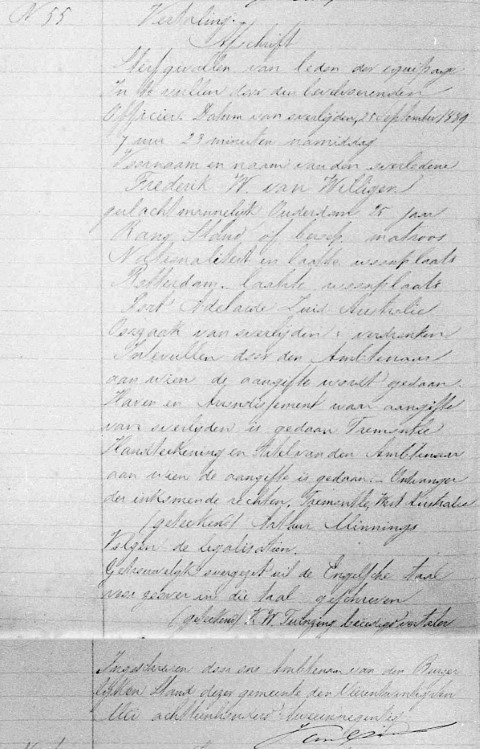 N 55 Vertaling.
Afschrift
Sterfgevallen van leden der equipage
In te vullen door den bevelvoerenden
Officier. Datum van overlijden, 28 September 1889
7 uur 23 minuten namiddag
Voornaam en naam van den overledene
Frederik W. van Willigen
geslacht mannelijk Ouderdom 25 jaar
Rang Stand of beroep matroos
Nationaliteit en laatste woonplaats
Rotterdam. laatste woonplaats
Port Adelaide Zuid Australie
Oorzaak van overlijden: verdrinken
Intevullen door den Ambtenaar
aan wien de aangifte wordt gedaan.
Haven en Arrondissement waar aangifte
van overlijden is gedaan Fremantle
Handteekening en Titel van den Ambtenaar
aan wien de aangifte is gedaan. Ontvanger
der inkomende rechten. Fremantle, West Australie
(geteekend) Arthur Minnings
Volgen de legalisatien.
Getrouwelijk overgezet uit de Engelsche taal
voor zoover in die taal geschreven
(geteekend) beëedigd vertaler
Ingeschreven door ons Ambtenaar van den Burger
lijken Stand dezer gemeente den Vierentwintigsten
Mei achttienhonderd tweeennegentig